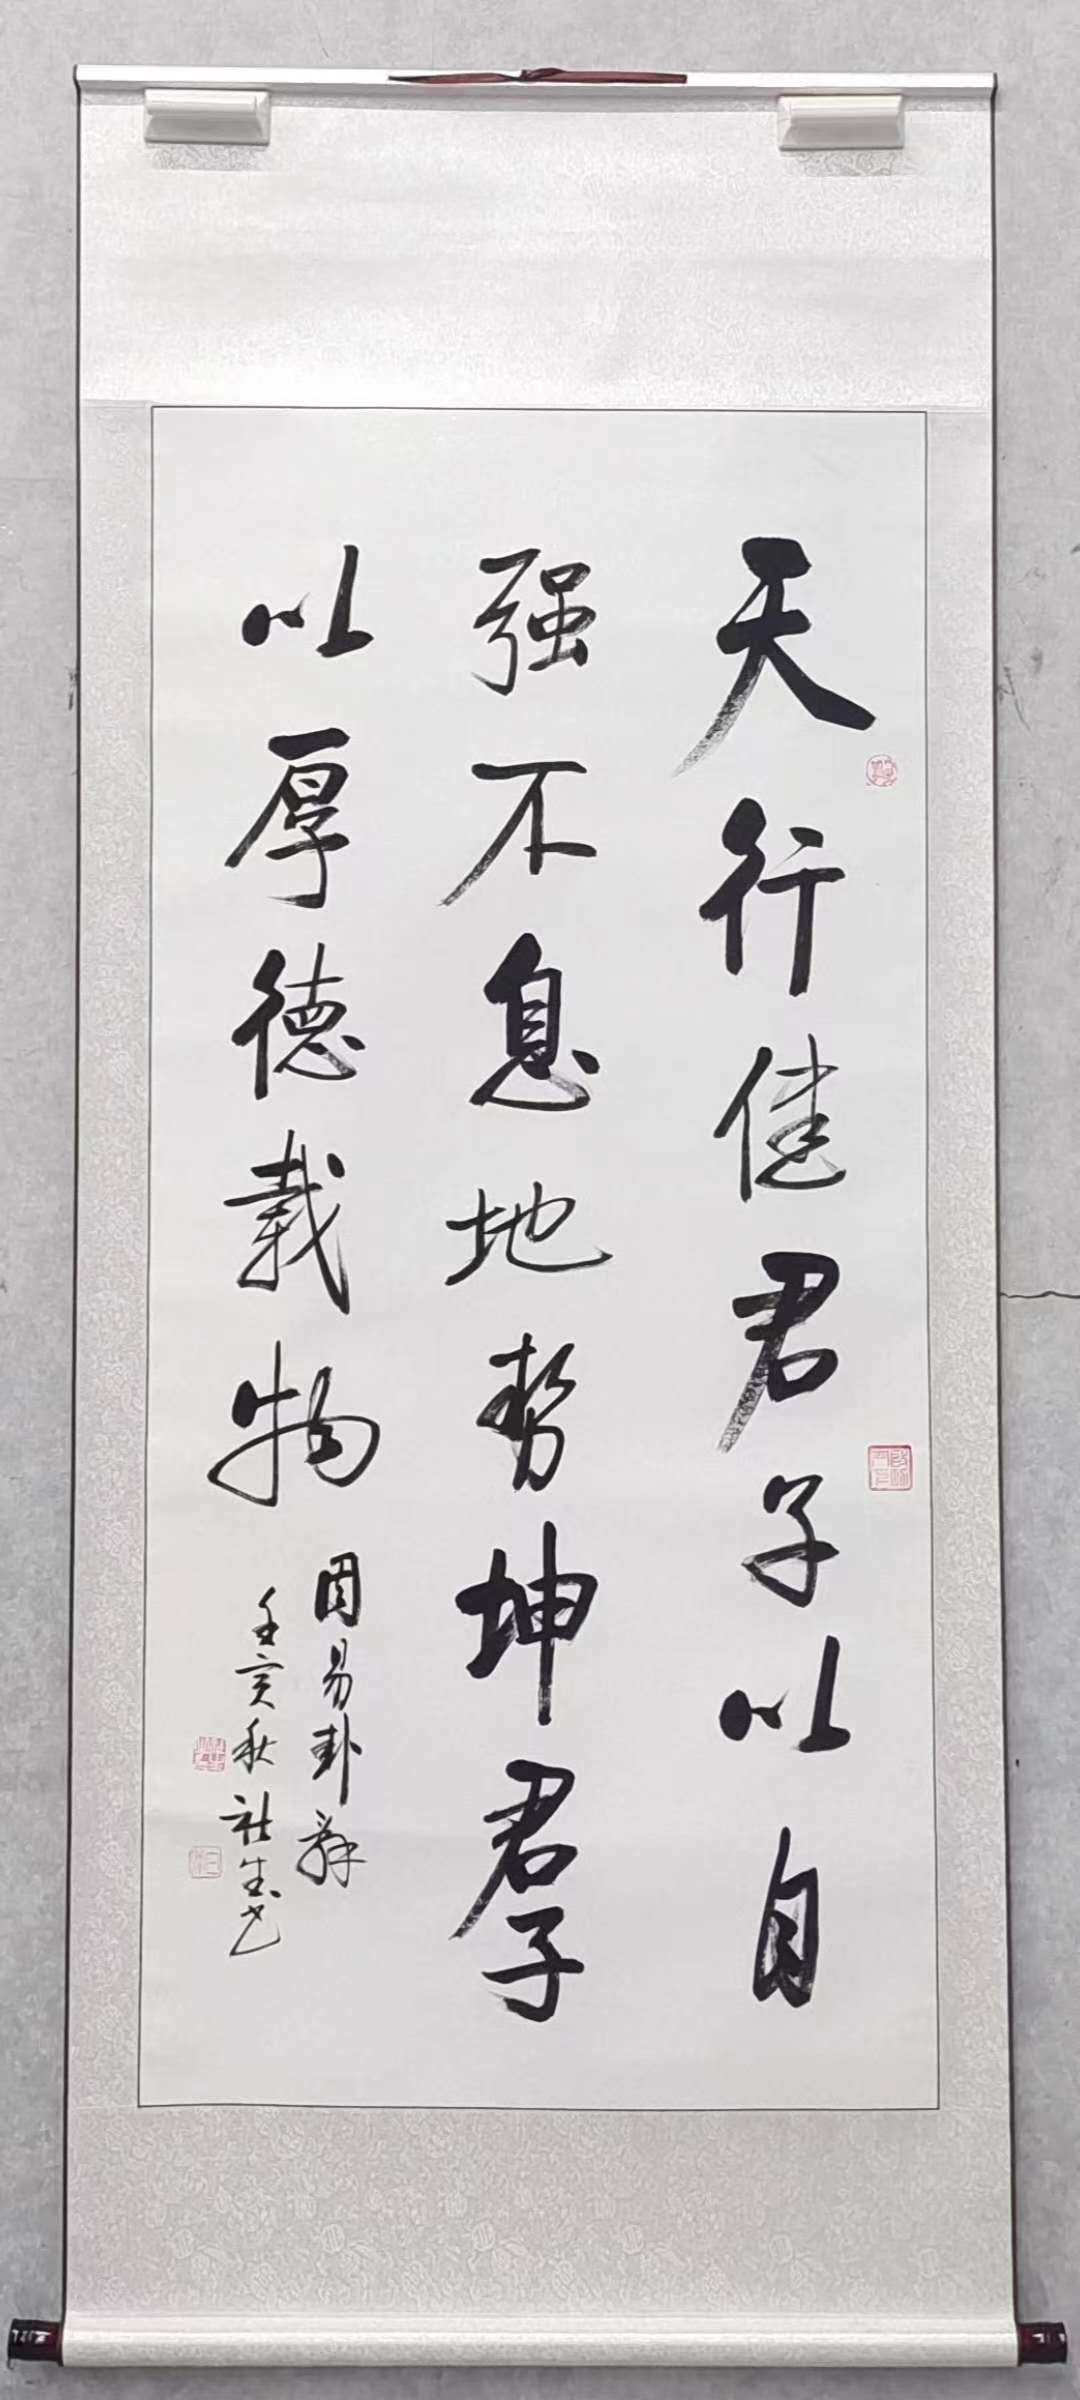 天行健君子以自
强不息地势坤君子
以厚德载物
周易卦辞
壬寅秋社生书